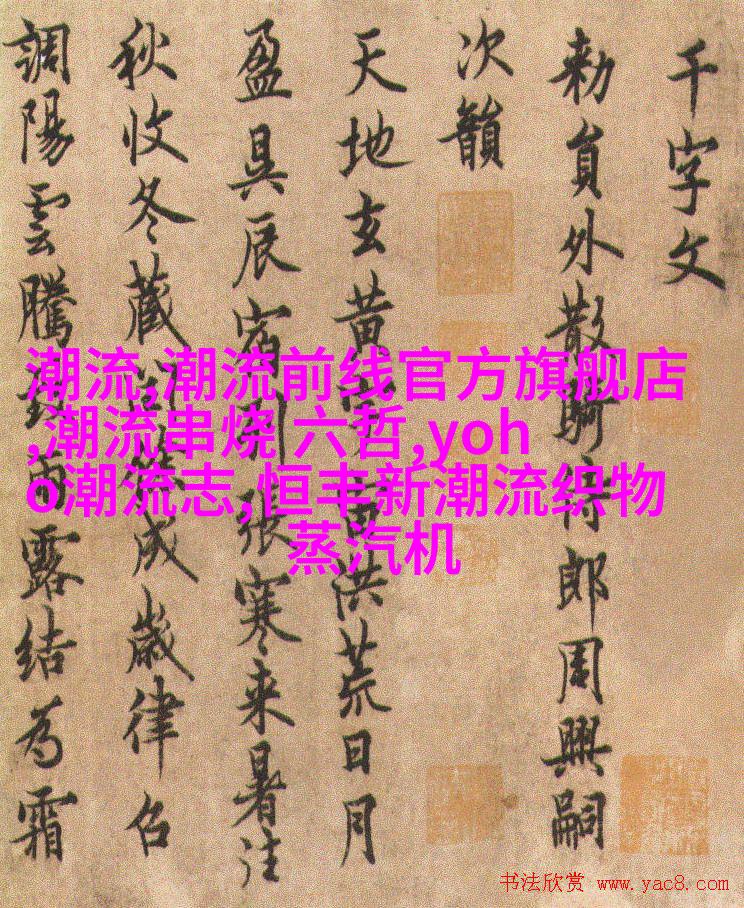 千字文
勅員外散騎侍郎周興嗣
次韻
天地玄黄宇宙洪荒日月
盈昃辰宿列張寒来暑往
秋收冬藏閏餘成歲律召
調陽雲騰致雨露結為霜
潮流,潮流前线官方旗舰店
,潮流串烧 六哲,yoh
o潮流志,恒丰新潮流织物
蒸汽机
书法欣赏 www.yac8.com